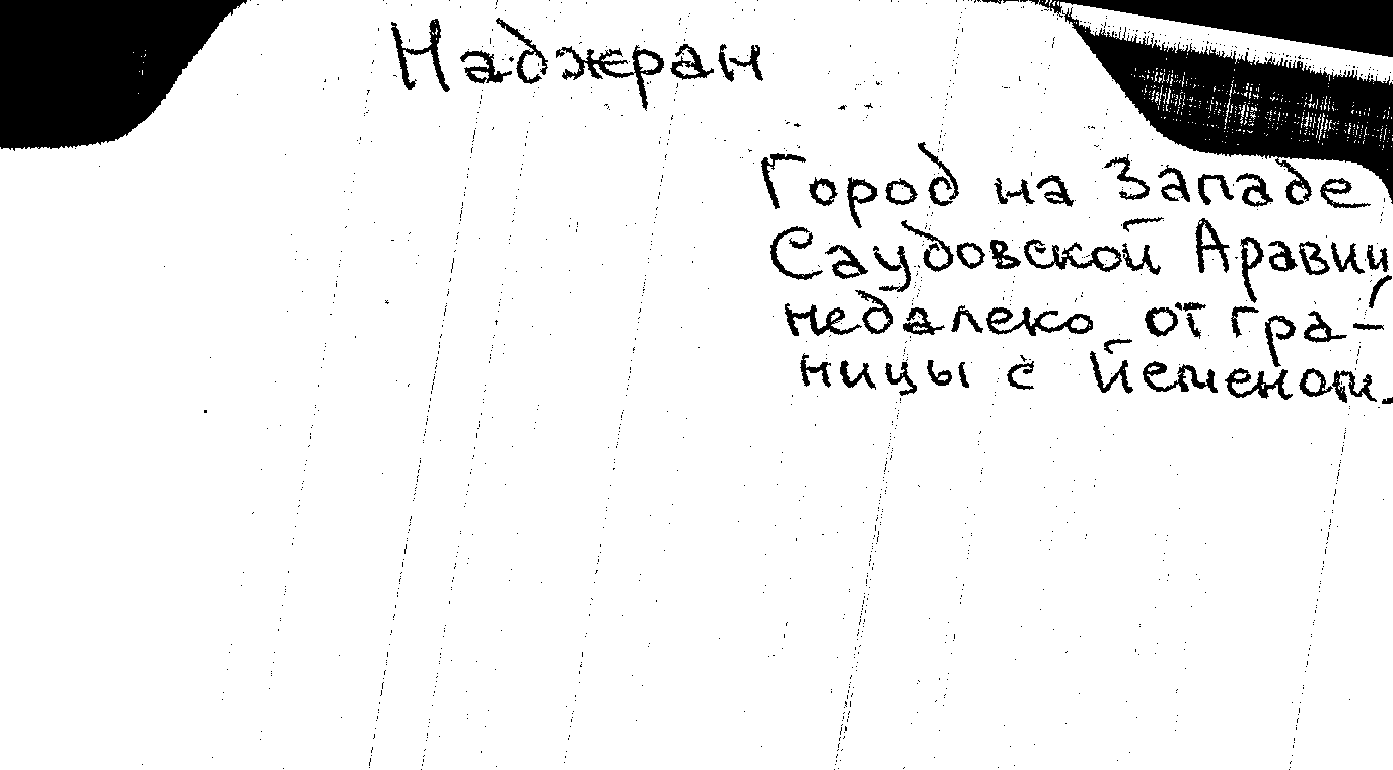 Наджран
Город на Западе
Саудовской Аравии
недалеко от гра-
ницы с Йеменом.